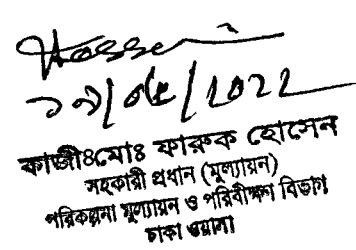 ১৯/০৫/২০২২
কাজীঃমোঃ ফারুক হোসেন
সহকারী প্রধান (মূল্যায়ন)
পরিকল্পনা মূল্যায়ন ও পরিবীক্ষণ বিভাগ
ঢাকা ওয়াসা